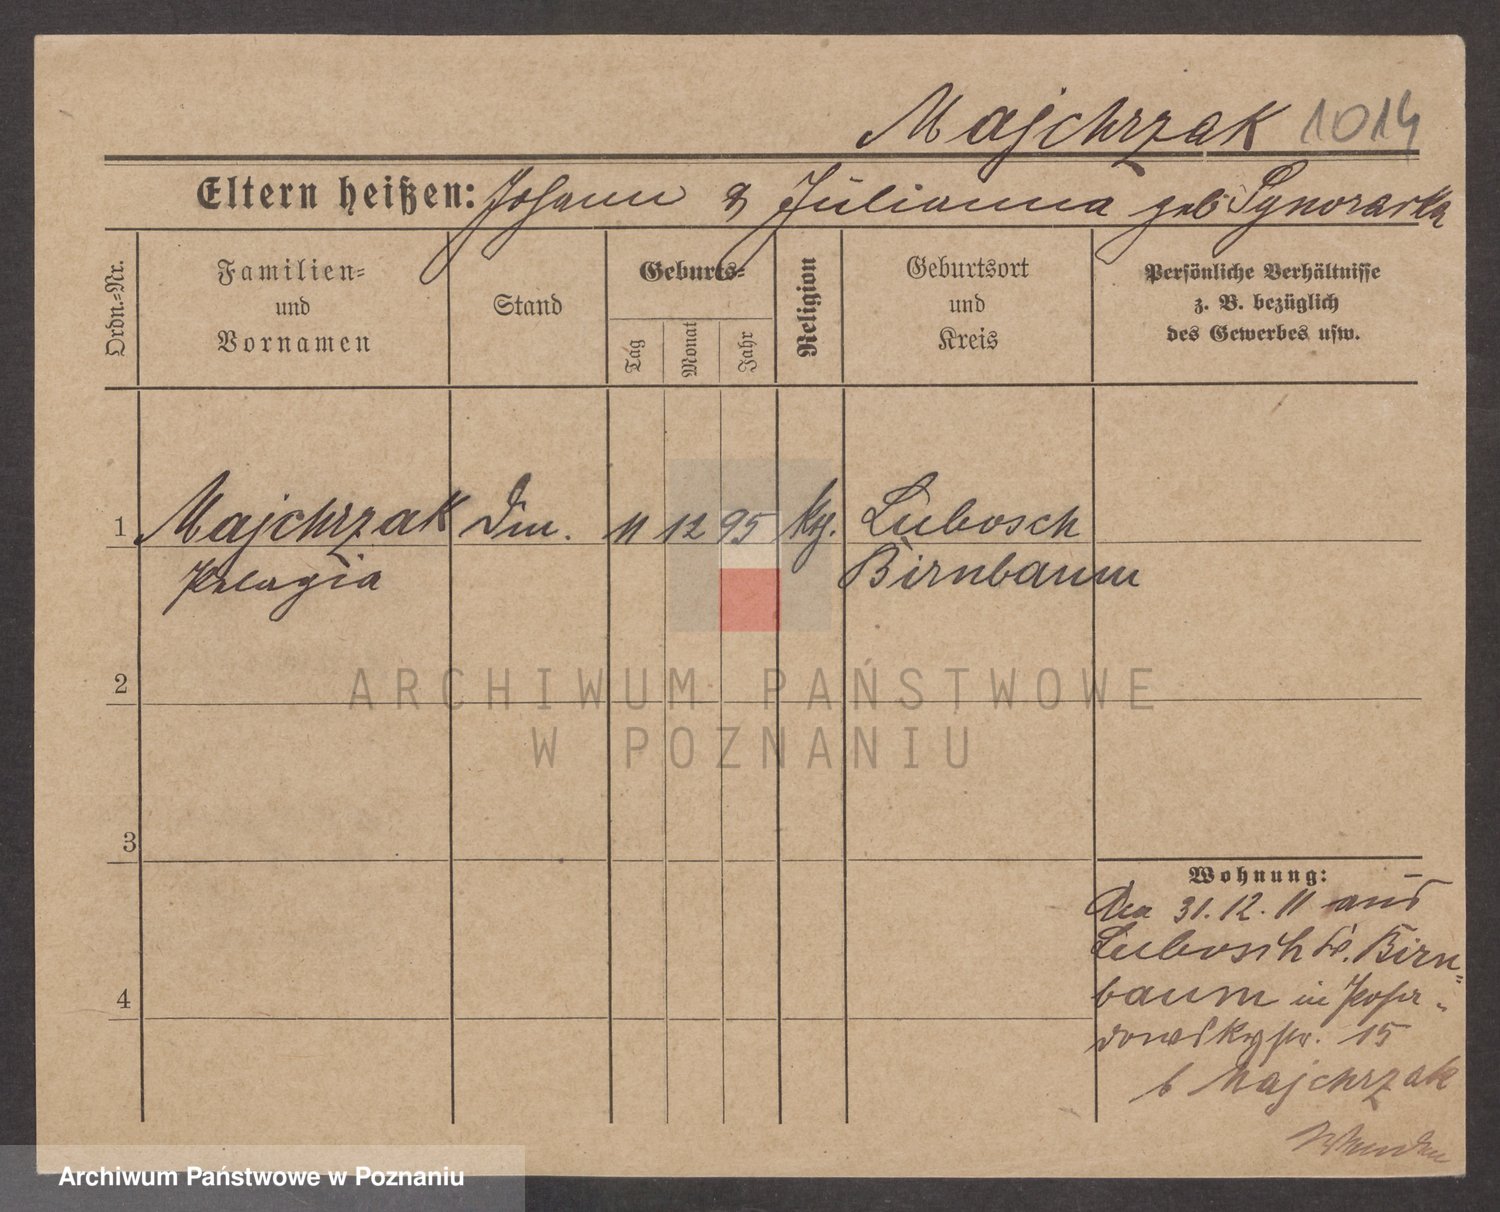 Majchrzak 1014
Eltern heißen: Johann & Julianna geb
Ordn.=Nr.
Familien=
und
Vornamen
Stand
Geburts=
Tag
Monat
Jahr
Religion
Geburtsort
und
Kreis
Persönliche Verhältnisse
z. B. bezüglich
des Gewerbes usw.
1 Majchrzak 11 12 95 Lubosch
Pelagia Birnbaum
2
ARCHIWUM PAŃSTWOWE
W POZNANIU
3
Wohnung:
31.12.11 aus
Lubosch Birn=
4
baum in
15
b Majchrzak
Archiwum Państwowe w Poznaniu